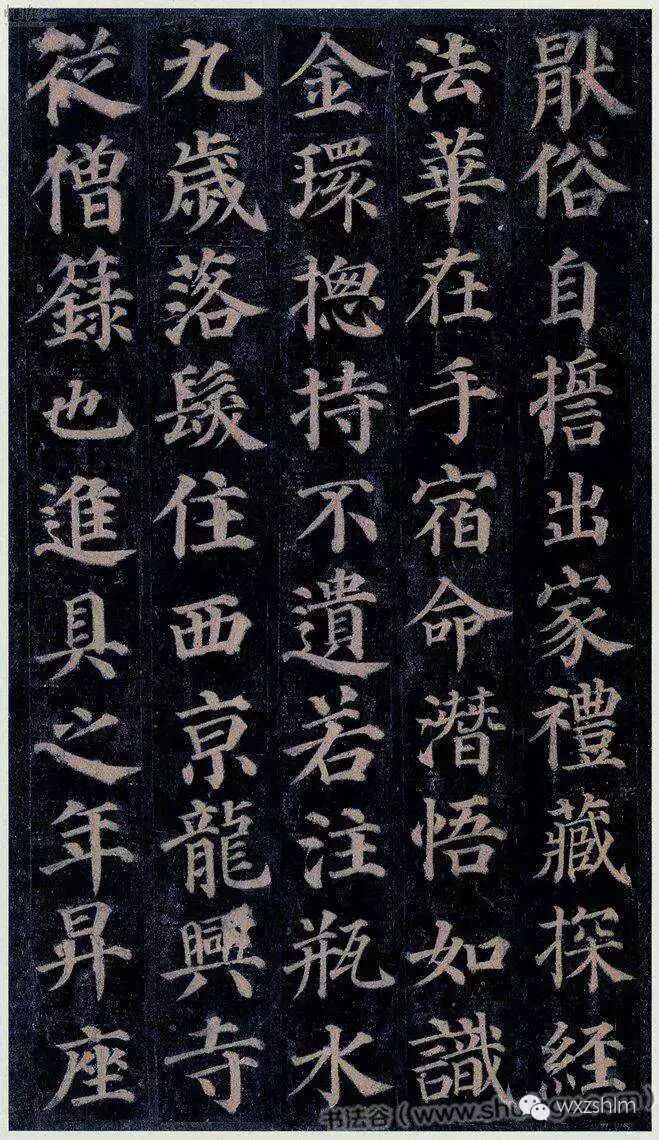 猒俗自擔出家禮藏探経
法華在手宿命潛悟如識
金環摠持不遺若注瓶水
九歲落髮住西京龍興寺
從僧籙也進具之年昇座
书法谷(www.shu
wxzshlm